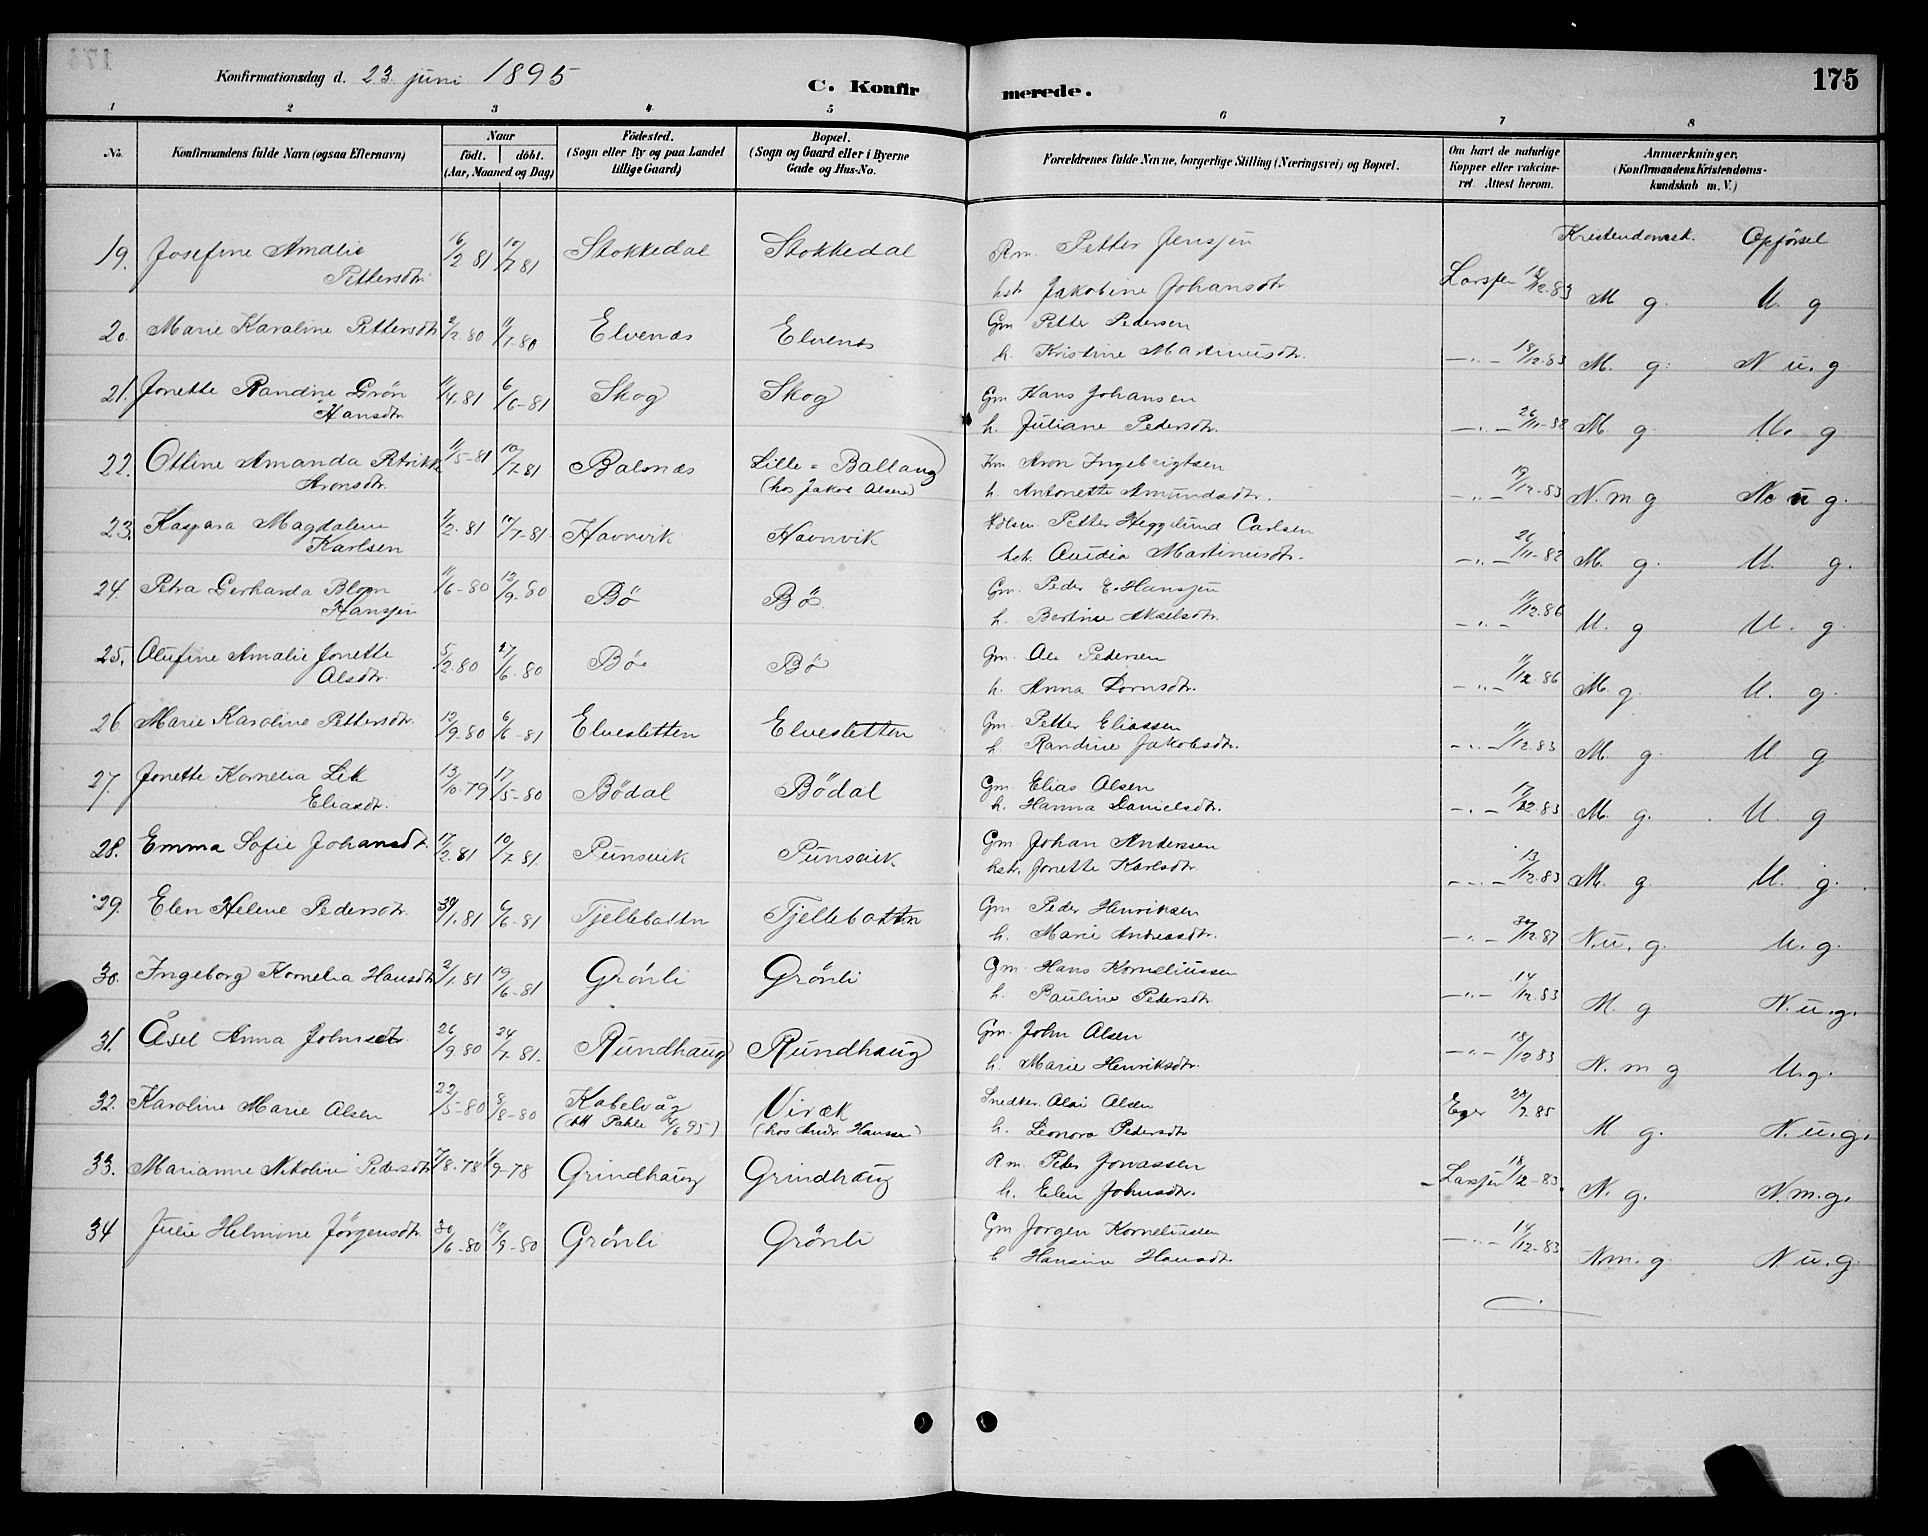 Konfirmationsdag d. 23 juni 1895
C. Konfirmerede.
175
1 2 3 4 5 6 7 8
No.
Konfirmandens fulde Navn (ogsaa Efternavn)
Naar
födt. | döbt.
(Aar, Maaned og Dag)
Födested.
(Sogn eller By og paa Landet
tillige Gaard)
Bopæl.
(Sogn og Gaard eller i Byerne
Gade og Hus-No.
Forældrenes fulde Navne, borgerlige Stilling (Næringsvei) og Bopæl.
Om havt de naturlige
Kopper eller vakcine-
ret. Attest herom.
Anmærkninger.
(Konfirmandens Kristendoms-
kundskab m. V.)
Kristendomsk. Opförsel
19. Josefine Amalie 16/2 81 10/7 81 Stokkedal Stokkedal Rm. Petter Jensen
Pettersdtr. hstr Jakobine Johansdtr Larsen 12.83 M g. M g
20. Marie Karoline Pettersdtr 2/2.80 11/1.80 Elvenæs Elvenæs Gm Petter Pedersen
h. Kristine Martinusdtr. —"— 18/12.83 M. g. N u. g
21. Jonette Randine Grön 11/4.81 6/6-81 Skog Skog Gm Hans Johansen
Hansdtr. h. Juliane Pedersdtr. —"— 26/11-82 M g. M. g.
22. Ottine Amanda Petrikke 11/5-81 10/7.81 Balsnæs Lille-Ballang Km. Aron Ingebrigtsen
Aronsdtr. (hos Jakob Olsen) h. Antonette Amundsdtr. —"— 19/12-83 N. m g N. u g.
23. Kaspara Magdalene 1/2.81 10/7-81 Havnvik Havnvik Petter Hegglund Carlsen
Karlsen hstr. Ovidia Martinusdtr. —"— 26/11-82 M. g. M. g.
24 Petra Gerharda Blom 11/6-80 12/9-80 Bö Bö. Gm. Peder E. Hansen
Hansen h. Bertine Akselsdtr. —"— 11/12.86 M. g M. g.
25. Olufine Amalie Jonette 5/2.80 27/6.80 Bö Bö Gm. Ole Pedersen
Olsdtr. h. Anna Larnsdtr. —"— 11/12 86 M. g. M. g.
26 Marie Karoline Pettersdtr. 12/9-80 6/6-81 Elvesletten Elvesletten Gm. Petter Eliassen
h Randine Jakobsdtr. —"— 11/12.83 M. g. M g
27. Jonette Kornelia Lek 13/10.79 17/5-80 Bödal Bödal Gm. Elias Olsen
Eliasdtr. h. Hanna Danielsdtr. —"— 12.83 M. g. M g
28. Emma Sofie Johansdtr. 17/2.81 10/7 81 Punsvik Punsvik Gm. Johan Andersen
hstr. Jonette Karlsdtr —"— 13/12.83 M. g. M. g.
29. Elen Helene Pedersdtr. 30/1.81 6/6-81 Tjellebottn Tjellebottn Gm Peder Henriksen
h. Marie Andreasdtr. —"— 30/12.87 N. u. g. M. g.
30. Ingeborg Kornelia Hansdtr 2/1.81 19/6-81 Grönli Grönli Gm. Hans Korneliussen
h. Pauline Pedersdtr. —"— 14/12.83 M. g N. u. g.
31. Åsel Anna Johnsdtr. 26/9.80 24/7-81. Rundhaug Rundhaug Gm. John Olsen
h. Marie Henriksdtr. —"— 18/12 83 N. m g M. g.
32. Karoline Marie Olsen 22/5-80 8/8-80 Kabelvåg Viræk Snedker. Olai Olsen
(Att Pahle 6 95) (hos Andr. Hansen) h. Leonora Pedersdtr Eger 7.85 M g. N. u. g.
33. Marianne Nikoline Pedersdtr 7/8.78 1/9-78 Grindhaug Grindhaug Rm. Peder Jonassen
h. Elen Johnsdtr. Larsen 18/12-83. N. g. N. m. g.
34 Julie Helmine Jörgensdtr 20/6-80 12/9-80 Grönli Grönli Gm Jörgen Korneliussen
h Hansine Hansdtr. —"— 14/12-83 N. m. g. N u. g.